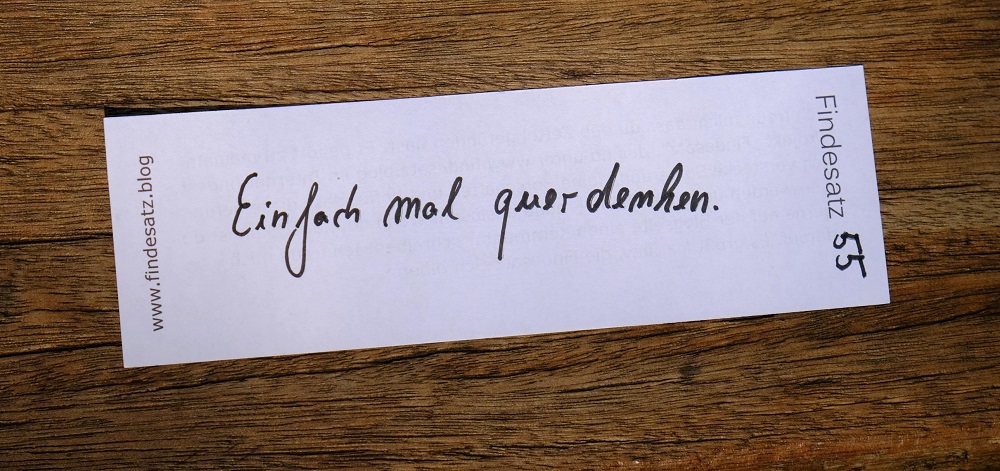 www.findesatz.blog
Einfach mal querdenken.
Findesatz 55